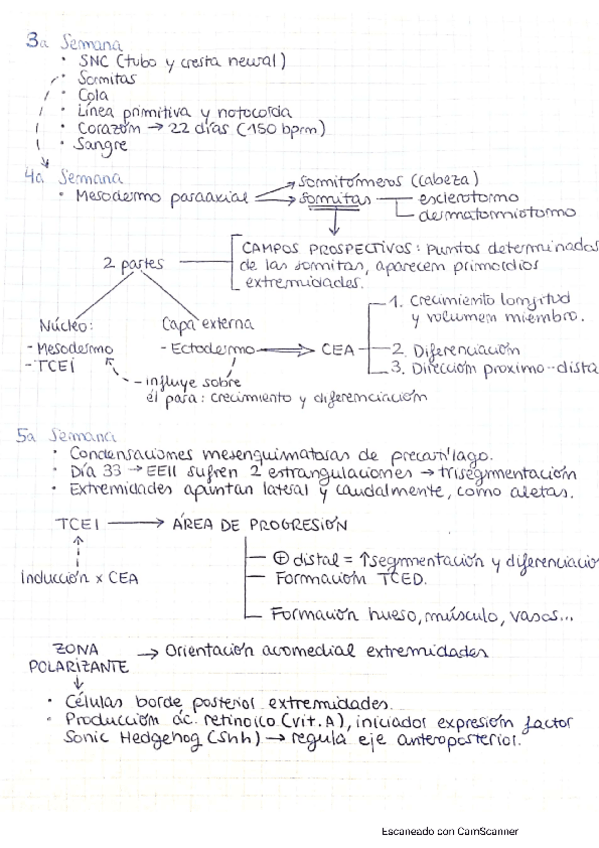 3a Semana
· SNC (tubo y cresta neural)
· Somitas
· Cola
· Línea primitiva y notocorda
· Corazón → 22 días (150 bpm)
· Sangre
4a Semana
· Mesodermo paraaxial
somitómeros (cabeza)
somitas
esclerotomo
dermatomiotomo
2 partes
CAMPOS PROSPECTIVOS: Puntos determinados
de las somitas, aparecen primordios
extremidades.
Núcleo:
- Mesodermo
- TCEI
Capa externa
- Ectodermo ⟹ CEA
1. Crecimiento longitud
y volumen miembro.
2. Diferenciación
3. Dirección proximo-dista
- influye sobre
él para: crecimiento y diferenciación
5a Semana
· Condensaciones mesenquimatosas de precartílago.
· Día 33 → EEII sufren 2 estrangulaciones → trisegmentación
· Extremidades apuntan lateral y caudalmente, como aletas.
TCEI → ÁREA DE PROGRESIÓN
inducción x CEA
⊕ distal = ↑segmentación y diferenciacio
Formación TCED.
Formación hueso, músculo, vasos...
ZONA
POLARIZANTE → Orientación acomedial extremidades
· Células borde posterior extremidades.
· Producción ác. retinoico (vit. A), iniciador expresión factor
Sonic Hedgehog (Shh) → regula eje anteroposterior.
Escaneado con CamScanner